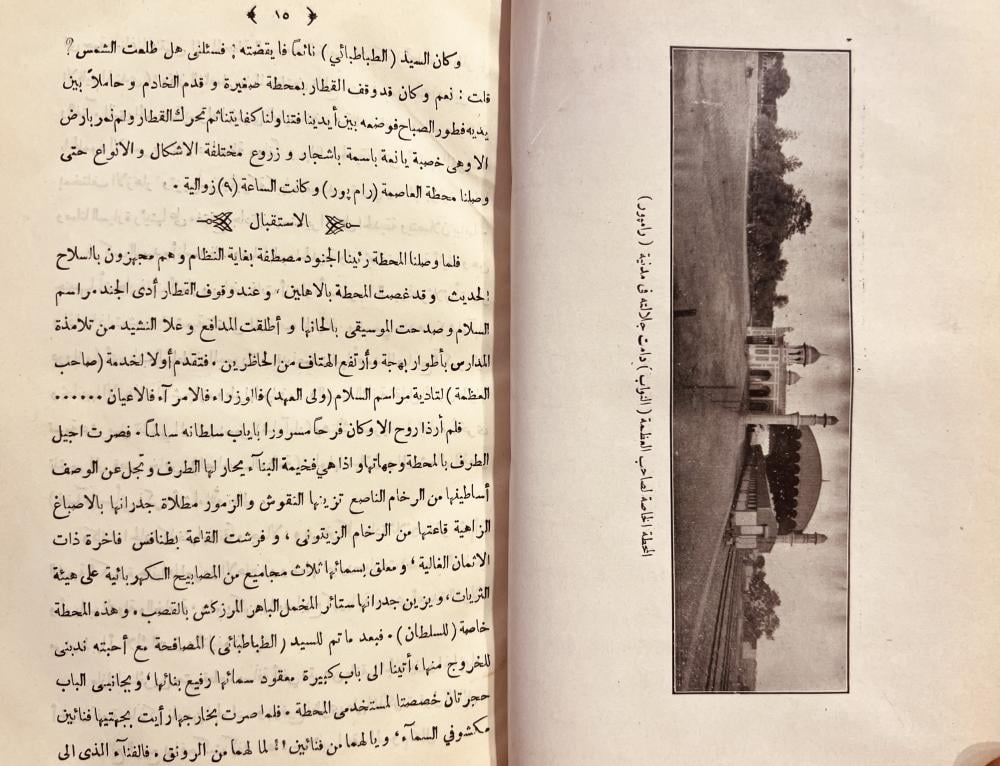 ﴿ ١٥ ﴾
وكان السيد (الطباطبائي) نائماً فايقضته ; فسئلنى هل طلعت الشمس ؟
قلت : نعم وكان قد وقف القطار بمحطة صغيرة و قدم الخادم و حاملاً بين
يديه فطور الصباح فوضعه بين أيدينا فتناولنا كفايتنا ثم تحرك القطار ولم نمر بارض
الا وهى خصبة يانعة باسمة باشجار و زروع مختلفة الاشكال و الانواع حتى
وصلنا محطة العاصمة (رام پور) وكانت الساعة (٩) زوالية .
الاستقبال
فلما وصلنا المحطة رئينا الجنود مصطفة بغاية النظام وهم مجهزون بالسلاح
الحديث . وقد غصت المحطة بالاهلين . وعند وقوف القطار أدى الجند مراسم
السلام وصدحت الموسيقى بالحانها و أطلقت المدافع و علا النشيد من تلامذة
المدارس بأطوار بهجة وأرتفع الهتاف من الحاظرين . فتقدم أولا لخدمة (صاحب
العظمة) لتادية مراسم السلام (ولى العهد) فالوزراء فالامرآء فالاعيان ......
فلم أرذا روح الا وكان فرحاً مسرورا باياب سلطانه سالماً . فصرت اجيل
الطرف بالمحطة وجهاتها واذا هي فخيمة البنآء يحار لها الطرف وتجل عن الوصف
أساطينها من الرخام الناصع تزينها النقوش و الزمور مطلاة جدرانها بالاصباغ
الزاهية قاعتها من الرخام الزيتونى ، و فرشت القاعة بطنافس فاخرة ذات
الاثمان الغالية ، ومعلق بسمائها ثلاث مجاميع من المصابيح الكهربائية على هيئة
الثريات ، ويزين جدرانها ستائر المخمل الباهر المزركش بالقصب . وهذه المحطة
خاصة (للسلطان) . فبعد ما تم للسيد (الطباطبائى) المصافحة مع أحبته ندبنى
للخروج منها ، أتينا الى باب كبيرة معقود سمائها رفيع بنائها ، وبجانبى الباب
حجرتان خصصتا لمستخدمى المحطة . فلما صرت بخارجها رأيت بجهتيها فنائين
مكشوفي السمآء ، ويا لهما من فنائين !! لما لهما من الرونق . فالفنآء الذى الى
المحطة الخاصة لصاحب العظمة (النواب) دامت جلالته فى مدنية (رامپور)